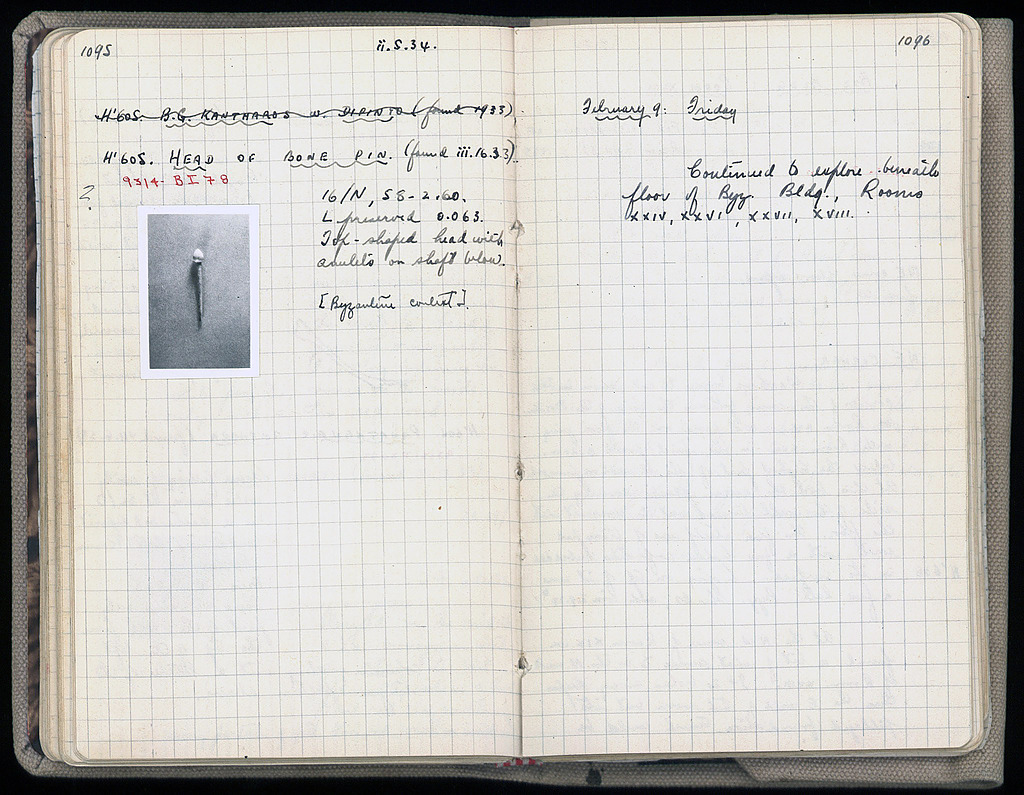 1095
ii.S.34.
H'605. B.G. KANTHAROS w. DIPINTO (found 1933)
H'605. HEAD OF BONE PIN. (found iii.16.33)
9314- BI 78
?
16/N, 58-2.60.
L preserved 0.063.
Top-shaped head with
amulets on shaft below.
[Byzantine context].
1096
February 9: Friday
Continued to explore beneath
floor of Byz. Bldg., Rooms
XXIV, XXVI, XXVII, XVIII.